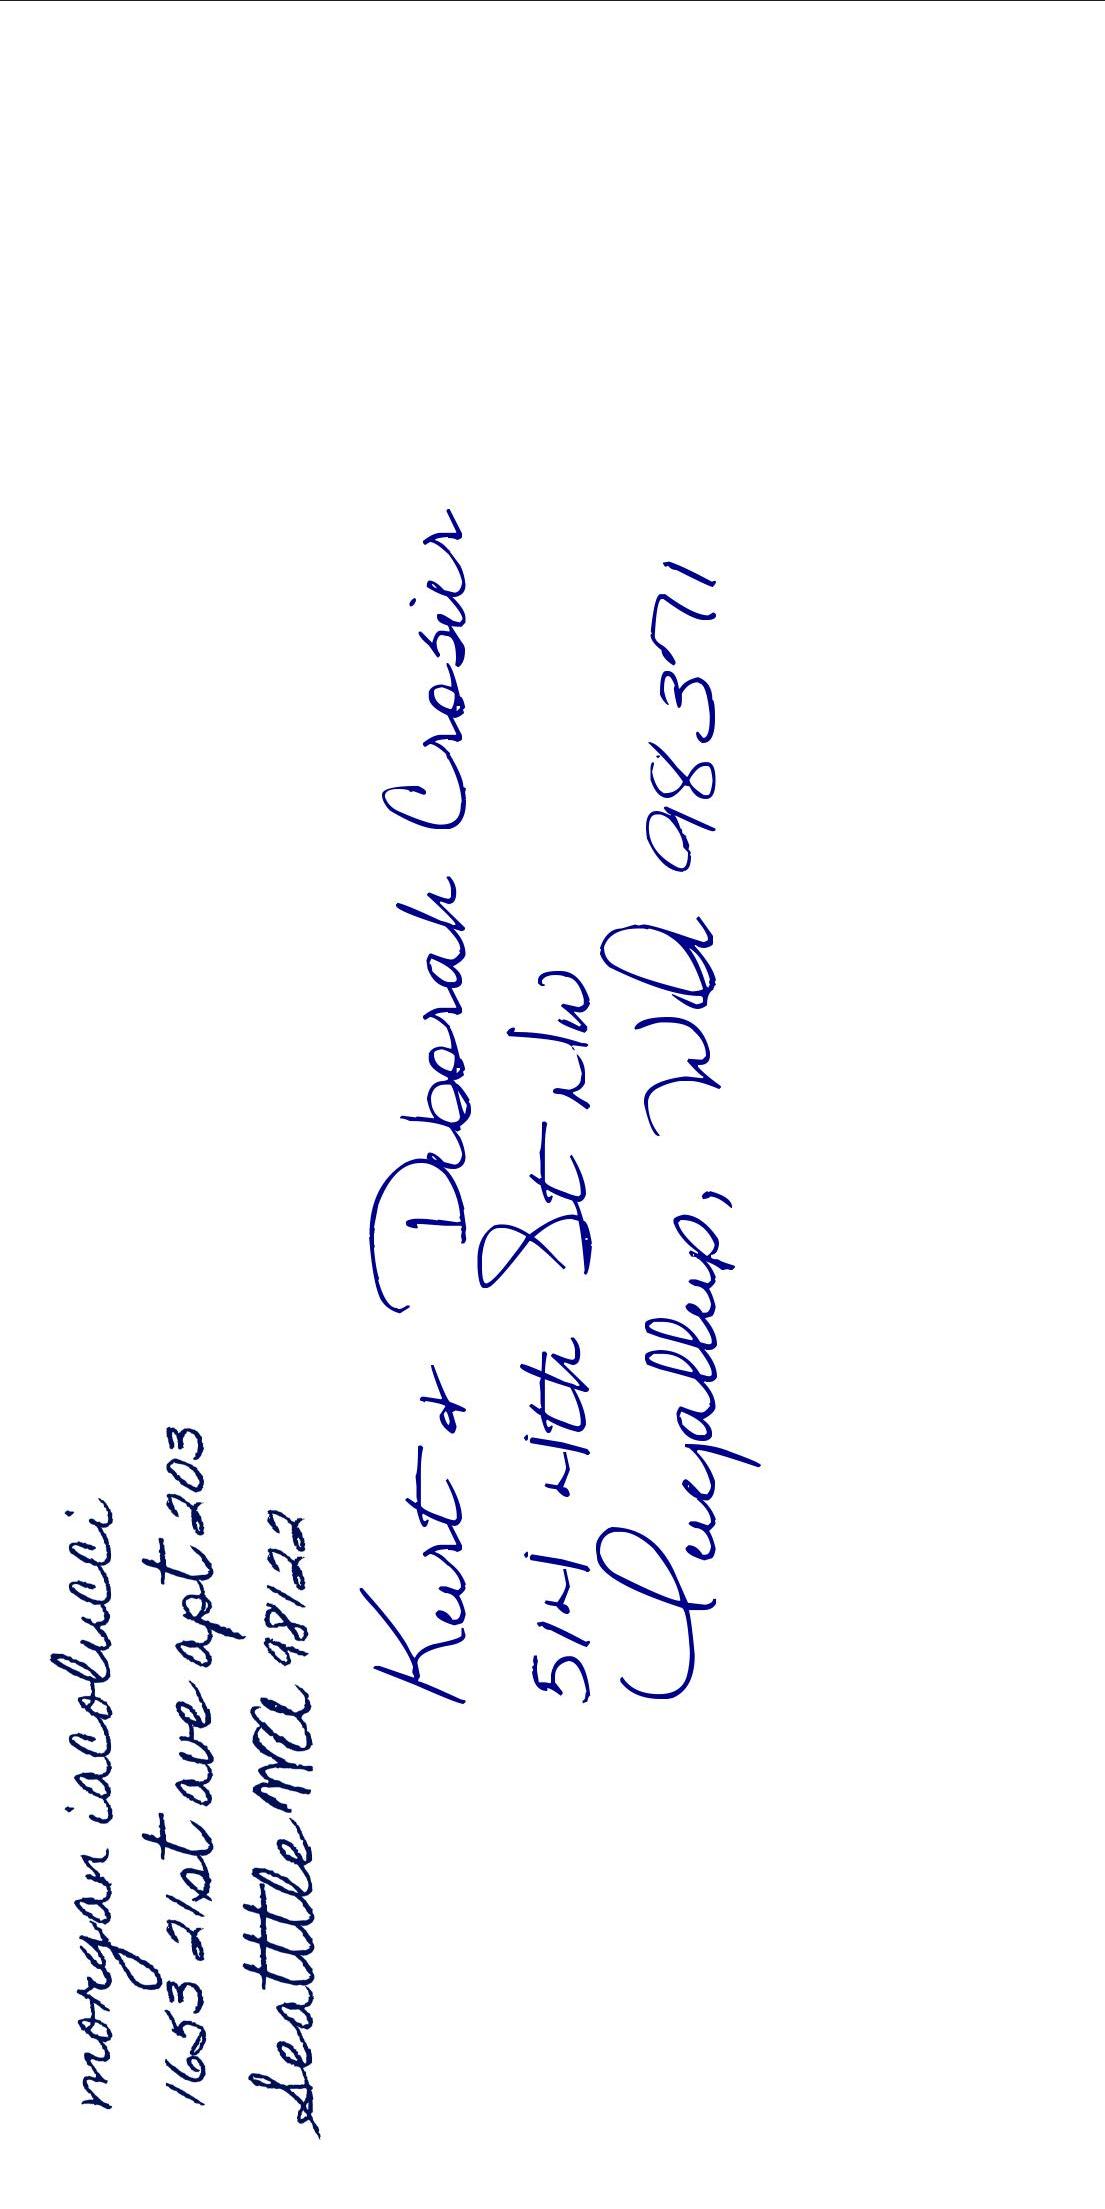 morgan iacolucci
1653 21st ave apt 203
Seatttle WA 98122
Kurt & Deborah Crosier
514 4th St NW
Puyallup, WA 98371